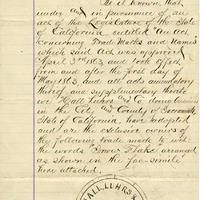 Be it Known, that
under and in pursuance of an
act of the Legislature of the State
of California entitled "An act
Concerning Trade Marks and Names
which said Act was approved
April 3rd 1863 and took effect
from and after the first day of
May 1863 and all acts amendatory
thereof and supplementary thereto
we Hall Luhrs and Co doing business
in the City and County of Sacramento
State of California, have adopted
and are the exclusive owners of
the following trade mark to wit:
the words Snow Flake arranged
as shown in the fac-simile
here attached.
HALL, LUHRS &